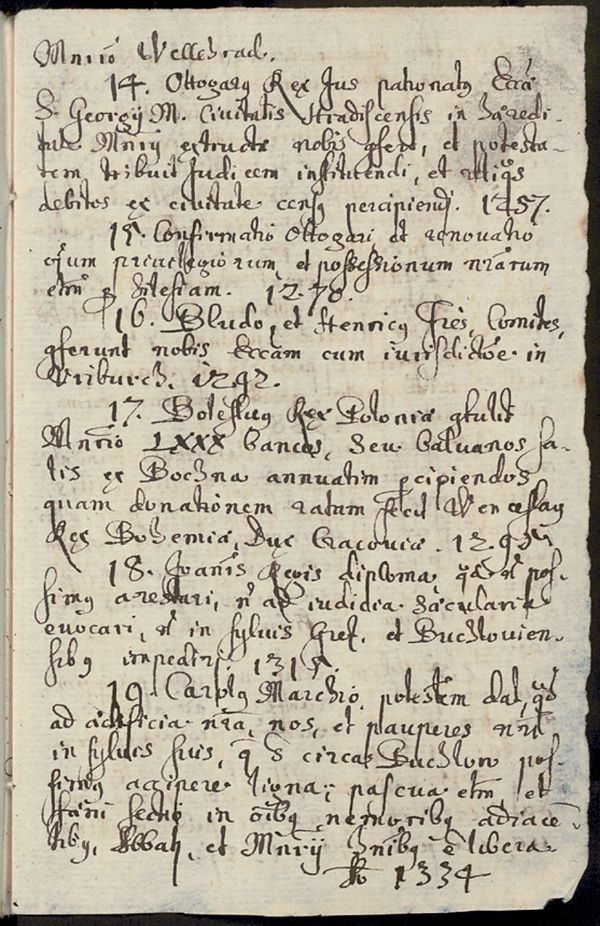 Mnrio Wellehrad.
14. Ottogarg Rex Jus patronatg Eccae
S. Georgij M. Civitatis Hradiscensis in haeredi-
tate Mnrij extructae nobis gfert, et potesta-
tem tribuit Judicem instituendi, et aliqs
debitos ex civitate censg percipiendi. 1257.
15. Confirmatio Ottogari et renovatio
oium privilegiorum, et possessionum nrarum
etm p Silesiam. 1270.
16. Bludo, et Henricg Fres, Comites,
gferunt nobis Eccam cum iurisdictoe in
Vriburch. 1292.
17. Boleslaug Rex Poloniae gtulit
Mnrio LXXX bancos, seu baluanos sa-
lis ex Bochna annuatim pcipiendos
quam donationem ratam fecit Wenceslag
Rex Bohemiae, Dux Cracoviae. 129
18. Joanis Regis diploma, qd n pos-
simg arestari, n ad iudicia saecularia
evocari, n in sylvis Gref. et Buchlovien-
sibg impediri. 131
19. Carolg Marchio potestem dat, qd
ad aedificia nra, nos, et pauperes nri
in sylvis suis, q s circa Buchlow pos-
simg accipere ligna; pascua etm et
faeni sectio in oibg nemoribg adiacen-
tibg, Abbati, et Mnrij hnibg e libera.
1334